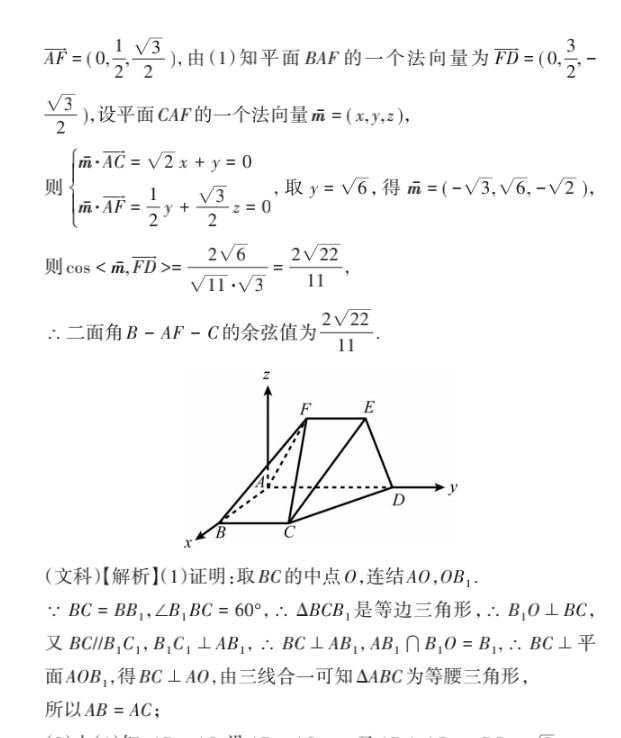 $\overrightarrow{AF}=(0,\frac{1}{2},\frac{\sqrt{3}}{2})$,由(1)知平面BAF的一个法向量为$\overrightarrow{FD}=(0,\frac{3}{2},-$
$\frac{\sqrt{3}}{2})$,设平面CAF的一个法向量$\bar{m}=(x,y,z)$,
则$\begin{cases}\bar{m}\cdot\overrightarrow{AC}=\sqrt{2}x+y=0\\\bar{m}\cdot\overrightarrow{AF}=\frac{1}{2}y+\frac{\sqrt{3}}{2}z=0\end{cases}$,取$y=\sqrt{6}$,得$\bar{m}=(-\sqrt{3},\sqrt{6},-\sqrt{2})$,
则$\cos<\bar{m},\overrightarrow{FD}>=\frac{2\sqrt{6}}{\sqrt{11}\cdot\sqrt{3}}=\frac{2\sqrt{22}}{11}$,
∴二面角B-AF-C的余弦值为$\frac{2\sqrt{22}}{11}$.
z
F E
A
D y
B C
x
(文科)【解析】(1)证明:取BC的中点O,连结AO,OB₁.
∵ BC=BB₁,∠B₁BC=60°,∴ ΔBCB₁是等边三角形,∴ B₁O⊥BC,
又 BC//B₁C₁,B₁C₁⊥AB₁,∴ BC⊥AB₁,AB₁∩B₁O=B₁,∴ BC⊥平
面AOB₁,得BC⊥AO,由三线合一可知ΔABC为等腰三角形,
所以AB=AC;